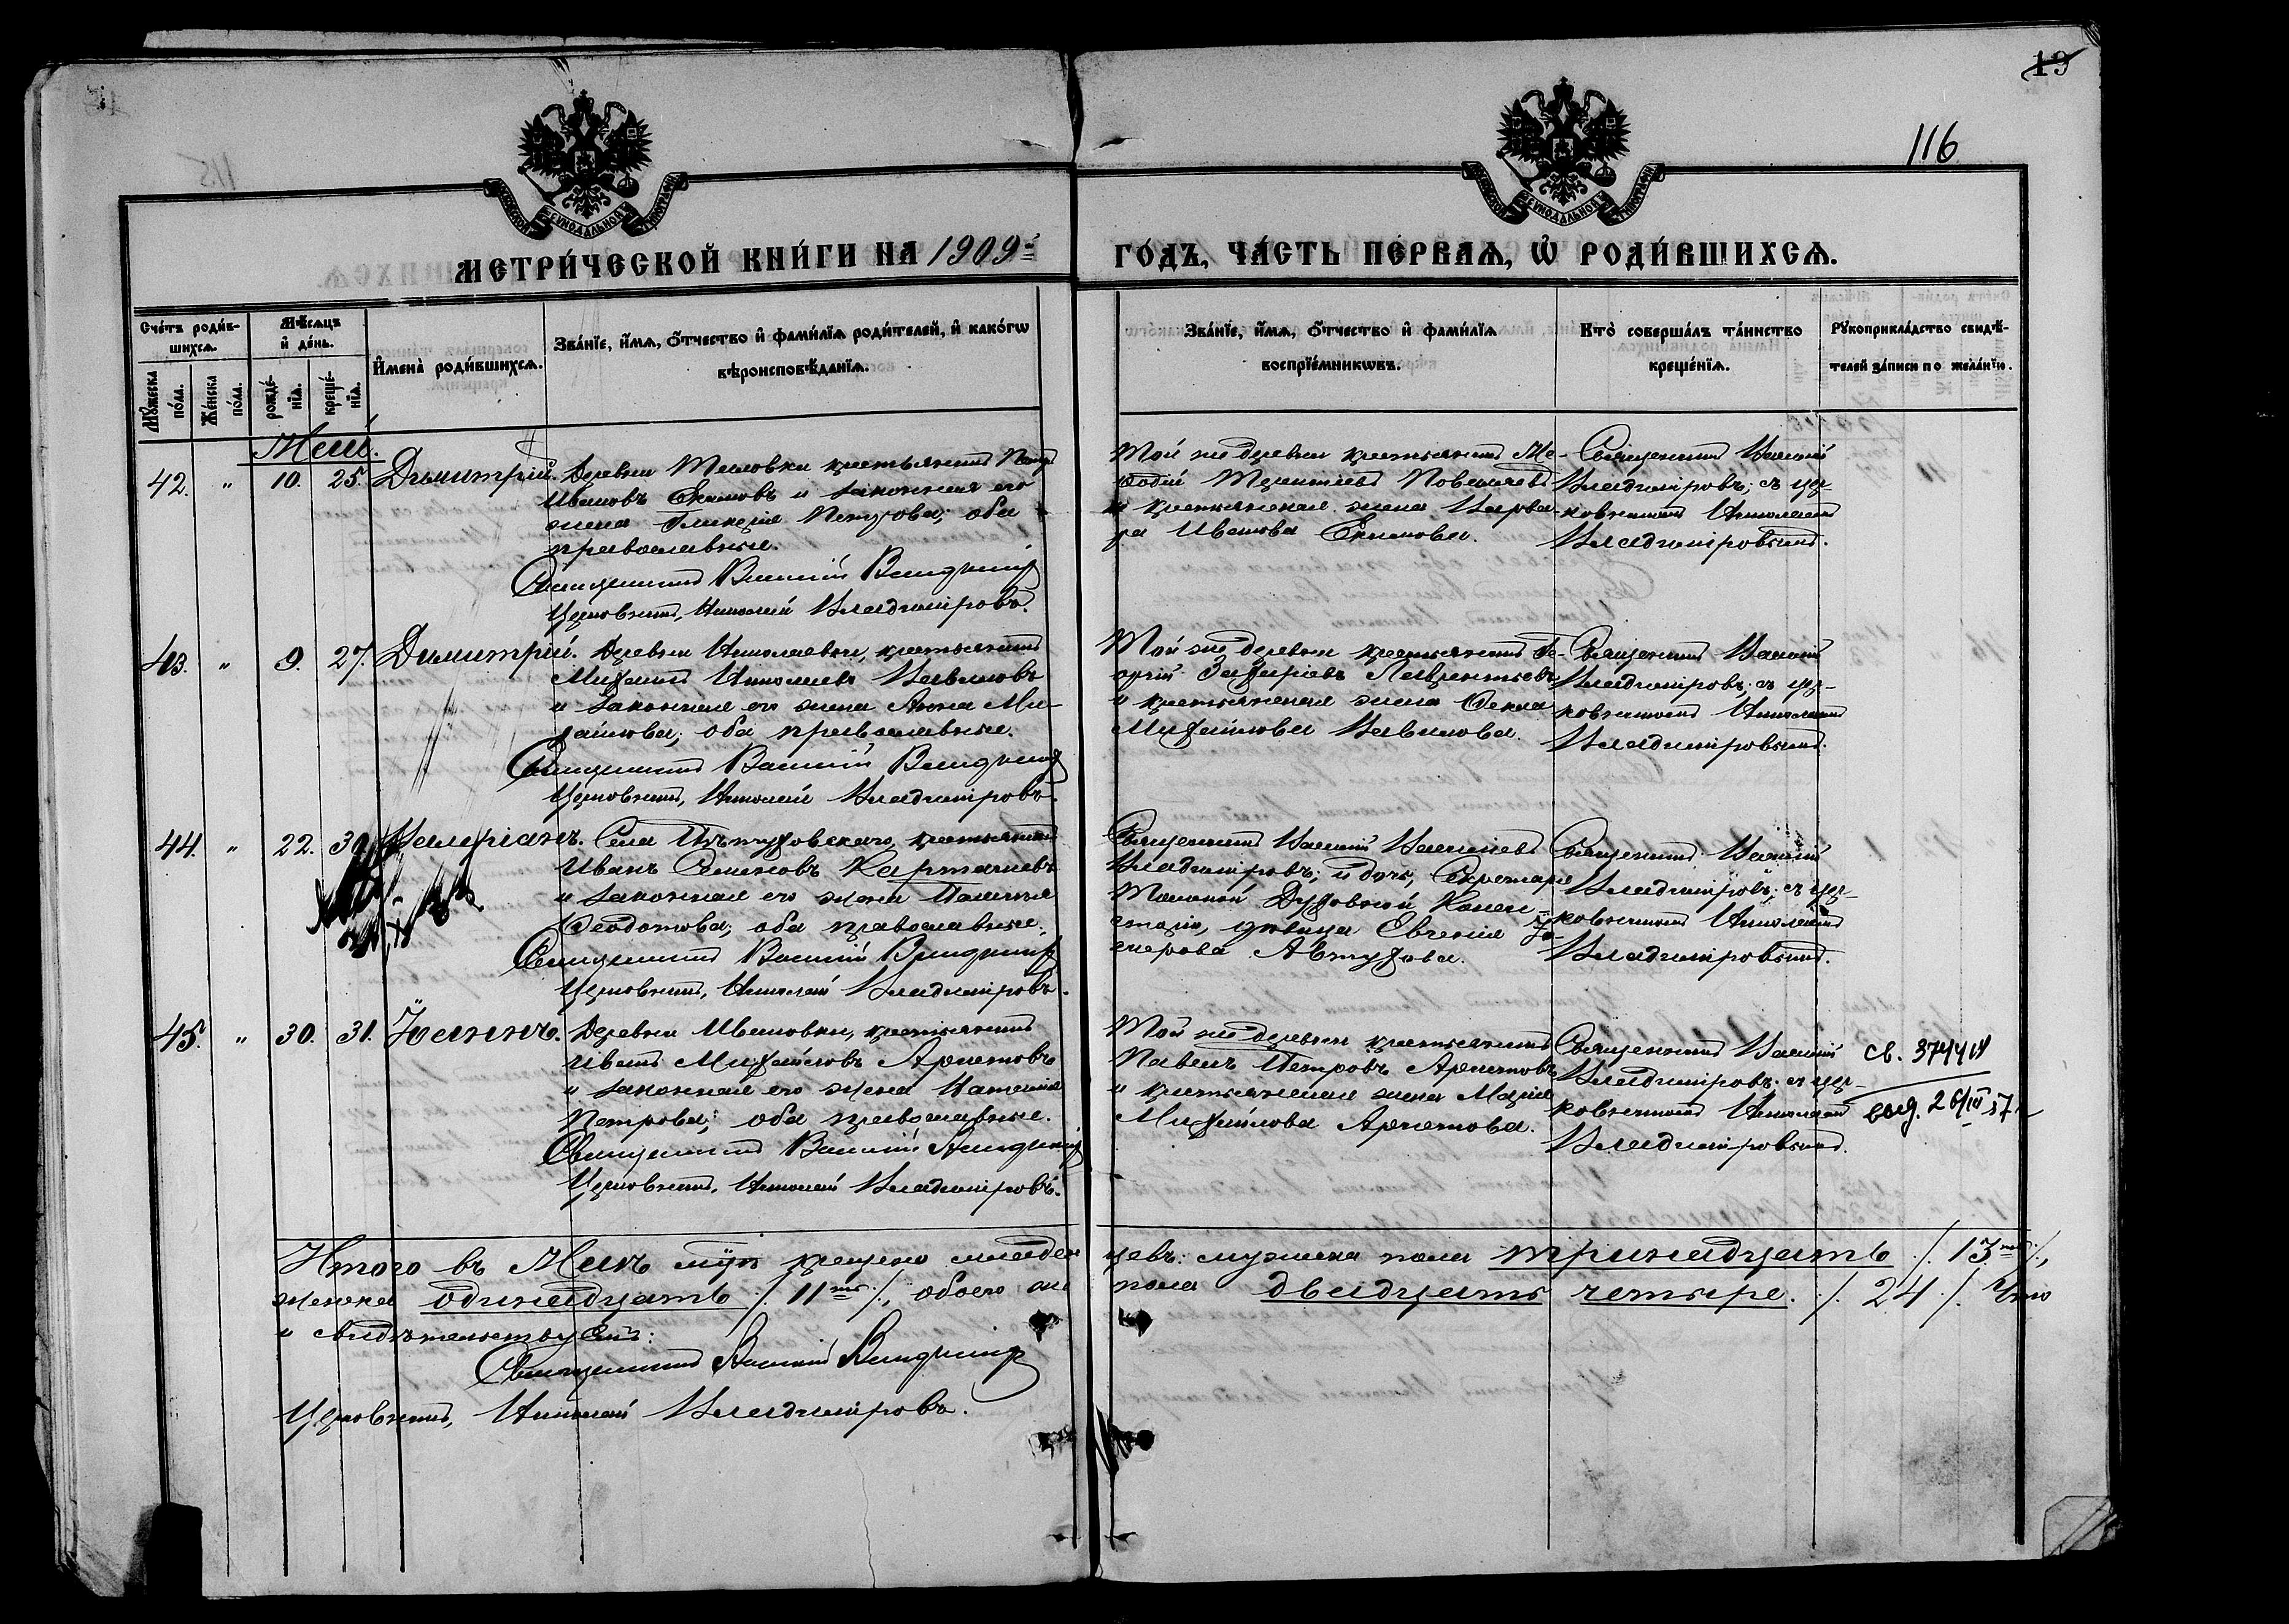 19
116
МОСКОВСКОЙ СѴНОДАЛЬНОЙ ТИПОГРАФІИ
МОСКОВСКОЙ СѴНОДАЛЬНОЙ ТИПОГРАФІИ
МЕТРИ́ЧЕСКОЙ КНИ́ГИ НА 1909й
ГО́ДЪ, ЧА́СТЬ ПЕ́РВАѦ, Ѽ РОДИ́ВШИХСѦ.
Сче́тъ роди́в-
шихсѧ.
Мꙋ́жеска по́ла.
Же́нска по́ла.
Мѣ́сѧцъ и҆ де́нь.
рожде́-
нїѧ.
креще́-
нїѧ.
И҆мена̀ роди́вшихсѧ.
Зва́нїе, и҆́мѧ, ѻ҆́тчество и҆ фами́лїѧ роди́телей, и҆ како́гѡ
вѣроисповѣ́данїѧ.
Зва́нїе, и҆́мѧ, ѻ҆́тчество и҆ фами́лїѧ
воспрїе́мникѡвъ.
Кто̀ соверша́лъ та́инство
креще́нїѧ.
Рꙋкоприкла́дство свидѣ́-
телей за́писи по жела́нїю.
Май.
42. " 10. 25. Димитрій. Деревни крестьянинъ
Ивановъ Екимовъ и законная его
жена Гликерія Петрова; оба
православные.
Священникъ Василій Владиміровъ
Церковникъ, Николай Владиміровъ.
Той же деревни крестьянинъ Ме-
ѳодій Терентіевъ
и крестьянская жена Варва-
ра Иванова Екимова.
Священникъ Василій
Владиміровъ; съ цер-
ковникомъ Николаемъ
Владиміровымъ.
43. " 9. 27. Димитрій. Деревни Николаевки, крестьянинъ
Михаилъ Николаевъ Вавиловъ
и законная его жена Анна Ми-
хайлова; оба православные.
Священникъ Василій Владиміровъ
Церковникъ, Николай Владиміровъ.
Той же деревни крестьянинъ Ге-
оргій Захаріевъ Лаврентьевъ
и крестьянская жена Ѳекла
Михайлова Вавилова.
Священникъ Василій
Владиміровъ; съ цер-
ковникомъ Николаемъ
Владиміровымъ.
44. " 22. 30. Валеріанъ. Села Пѣтуховскаго, крестьянинъ
Иванъ Семеновъ Карташевъ
и законная его жена
Ѳеодотова; оба православные.
Священникъ Василій Владиміровъ
Церковникъ, Николай Владиміровъ.
Священникъ Василій Василіевъ
Владиміровъ; и дочь, Секретаря
Томской Духовной Консис-
торіи, дѣвица Евгенія
Автухова.
Священникъ Василій
Владиміровъ; съ цер-
ковникомъ Николаемъ
Владиміровымъ.
45. " 30. 31. Іоаннъ. Деревни Ивановки, крестьянинъ
Иванъ Михайловъ Архиповъ
и законная его жена Наталія
Петрова; оба православные.
Священникъ Василій Владиміровъ
Церковникъ, Николай Владиміровъ.
Той же деревни крестьянинъ
Павелъ Петровъ Архиповъ
и крестьянская жена Марія
Михайлова Архипова.
Священникъ Василій
Владиміровъ; съ цер-
ковникомъ Николаемъ
Владиміровымъ.
св. 3744
выд. 26/III 57
Итого въ Маѣ крещено младен
цевъ: мужеска пола тринадцать /. 13. /.,
женска одинадцать /. 11 /., обоего же
пола двадцать четыре. /. 24 /. Что
и свидѣтельствуемъ:
Священникъ Василій Владиміровъ
Церковникъ, Николай Владиміровъ.